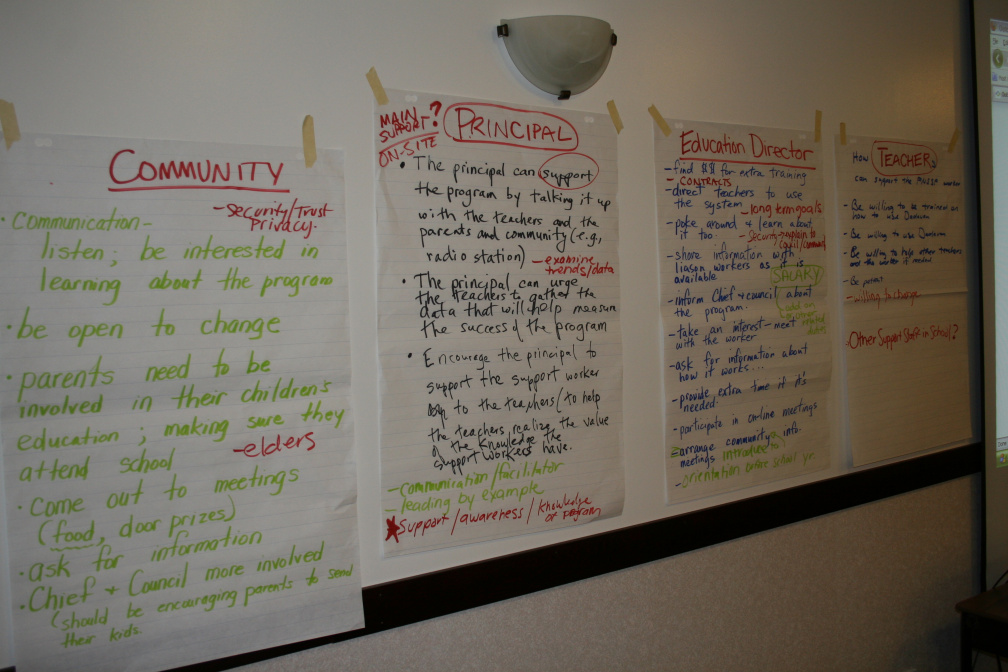 COMMUNITY
-security/Trust
Privacy.
• Communication-
listen; be interested in
learning about the program
• be open to change
• parents need to be
involved in their children's
education; making sure they
attend school
-elders
• Come out to meetings
(food, door prizes)
• ask for information
• Chief + Council more involved
(should be encouraging parents to send
their kids.
MAIN
SUPPORT?
ON-SITE
PRINCIPAL
• The principal can support
the program by talking it up
with the teachers and the
parents and community (e.g.,
radio station)
-examine
trends/data
• The principal can urge
the teachers to gather the
data that will help measure
the success of the program
• Encourage the principal to
support the support worker
to the teachers/to help
the teachers realize the value
of the knowledge the
support workers have.
-communication/facilitator
-leading by example
Support/awareness/knowledge
of program
Education Director
-find $$ for extra training
- CONTRACTS
-direct teachers to use
the system
-long term goals
-poke around + learn about
it too.
-Security-explain to
council/community
-share information with
liason workers as it is
available
SALARY
-inform Chief + council about
the program.
-take an interest-meet
with the worker
-ask for information about
how it works...
-provide extra time if it's
needed.
-participate in on-line meetings
-arrange community info.
meetings introduce
-orientation before school yr.
How TEACHERS
can support the worker
- Be willing to be trained on
how to use
- Be willing to use
- Be willing to help other teachers
and the worker if needed
- Be patient
-willing to change
-Other Support Staff in School?